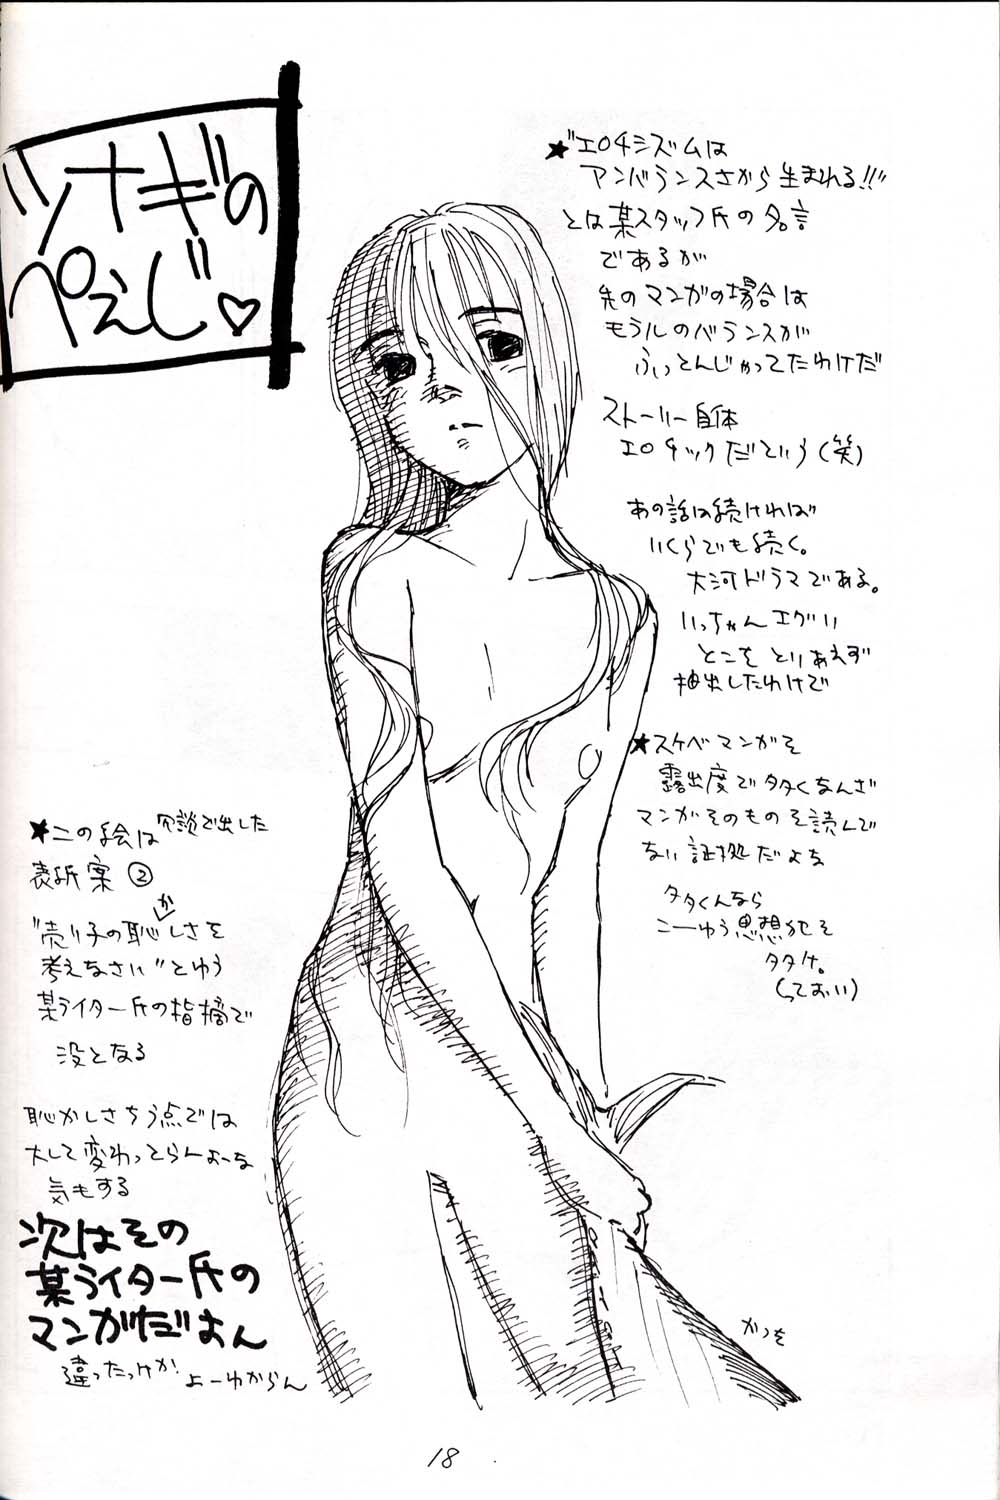 ツナギの
ぺぇじ♡
★"エロチシズムは
アンバランスさから生まれる!!"
とは某スタッフ氏の名言
であるが
先のマンガの場合は
モラルのバランスが
ふっとんじゃってたわけだ
ストーリー自体
エロチックだという(笑)
あの話は続ければ
いくらでも続く。
大河ドラマである。
いっちゃんエグい
とこをとりあえず
抽出したわけで
★スケベマンガを
露出度でタタくなんざ
マンガそのものを読んで
ない証拠だよな
タタくんなら
こーゆう思想犯を
タタけ。
(っておい)
★この絵は冗談で出した
表紙案②
"売り子の恥かしさを
考えなさい"とゆう
某ライター氏の指摘で
没となる
恥かしさちう点では
大して変わってらんよーな
気もする
次はその
某ライター氏の
マンガだよん
違ったっけか?よーわからん
かつを
18